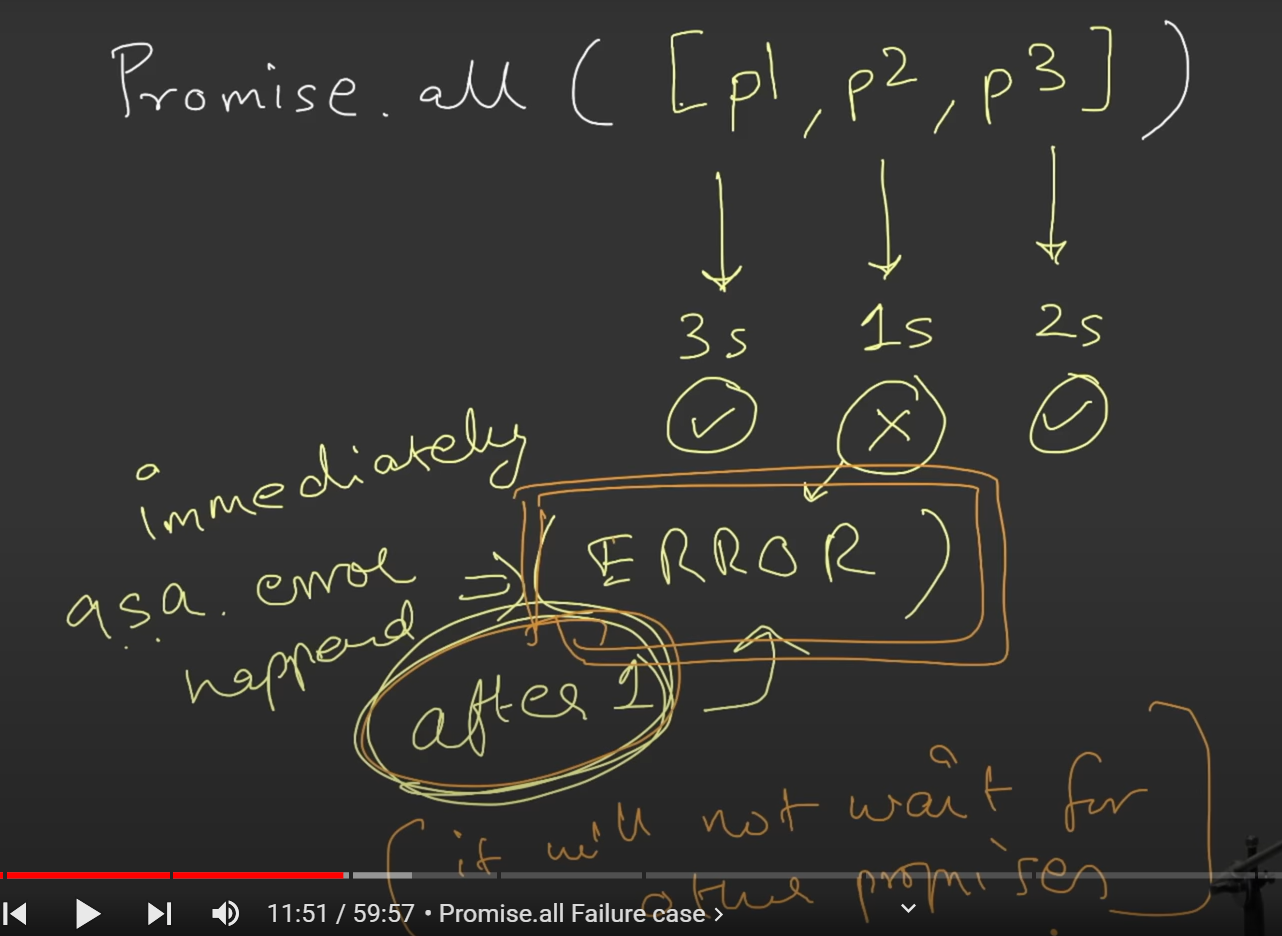 Promise.all ( [p1, p2, p3] )
3s 1s 2s
immediately
a.s.a. error
happened
=> ( ERROR )
after 1
( it will not wait for
other promises
11:51 / 59:57 • Promise.all Failure case >